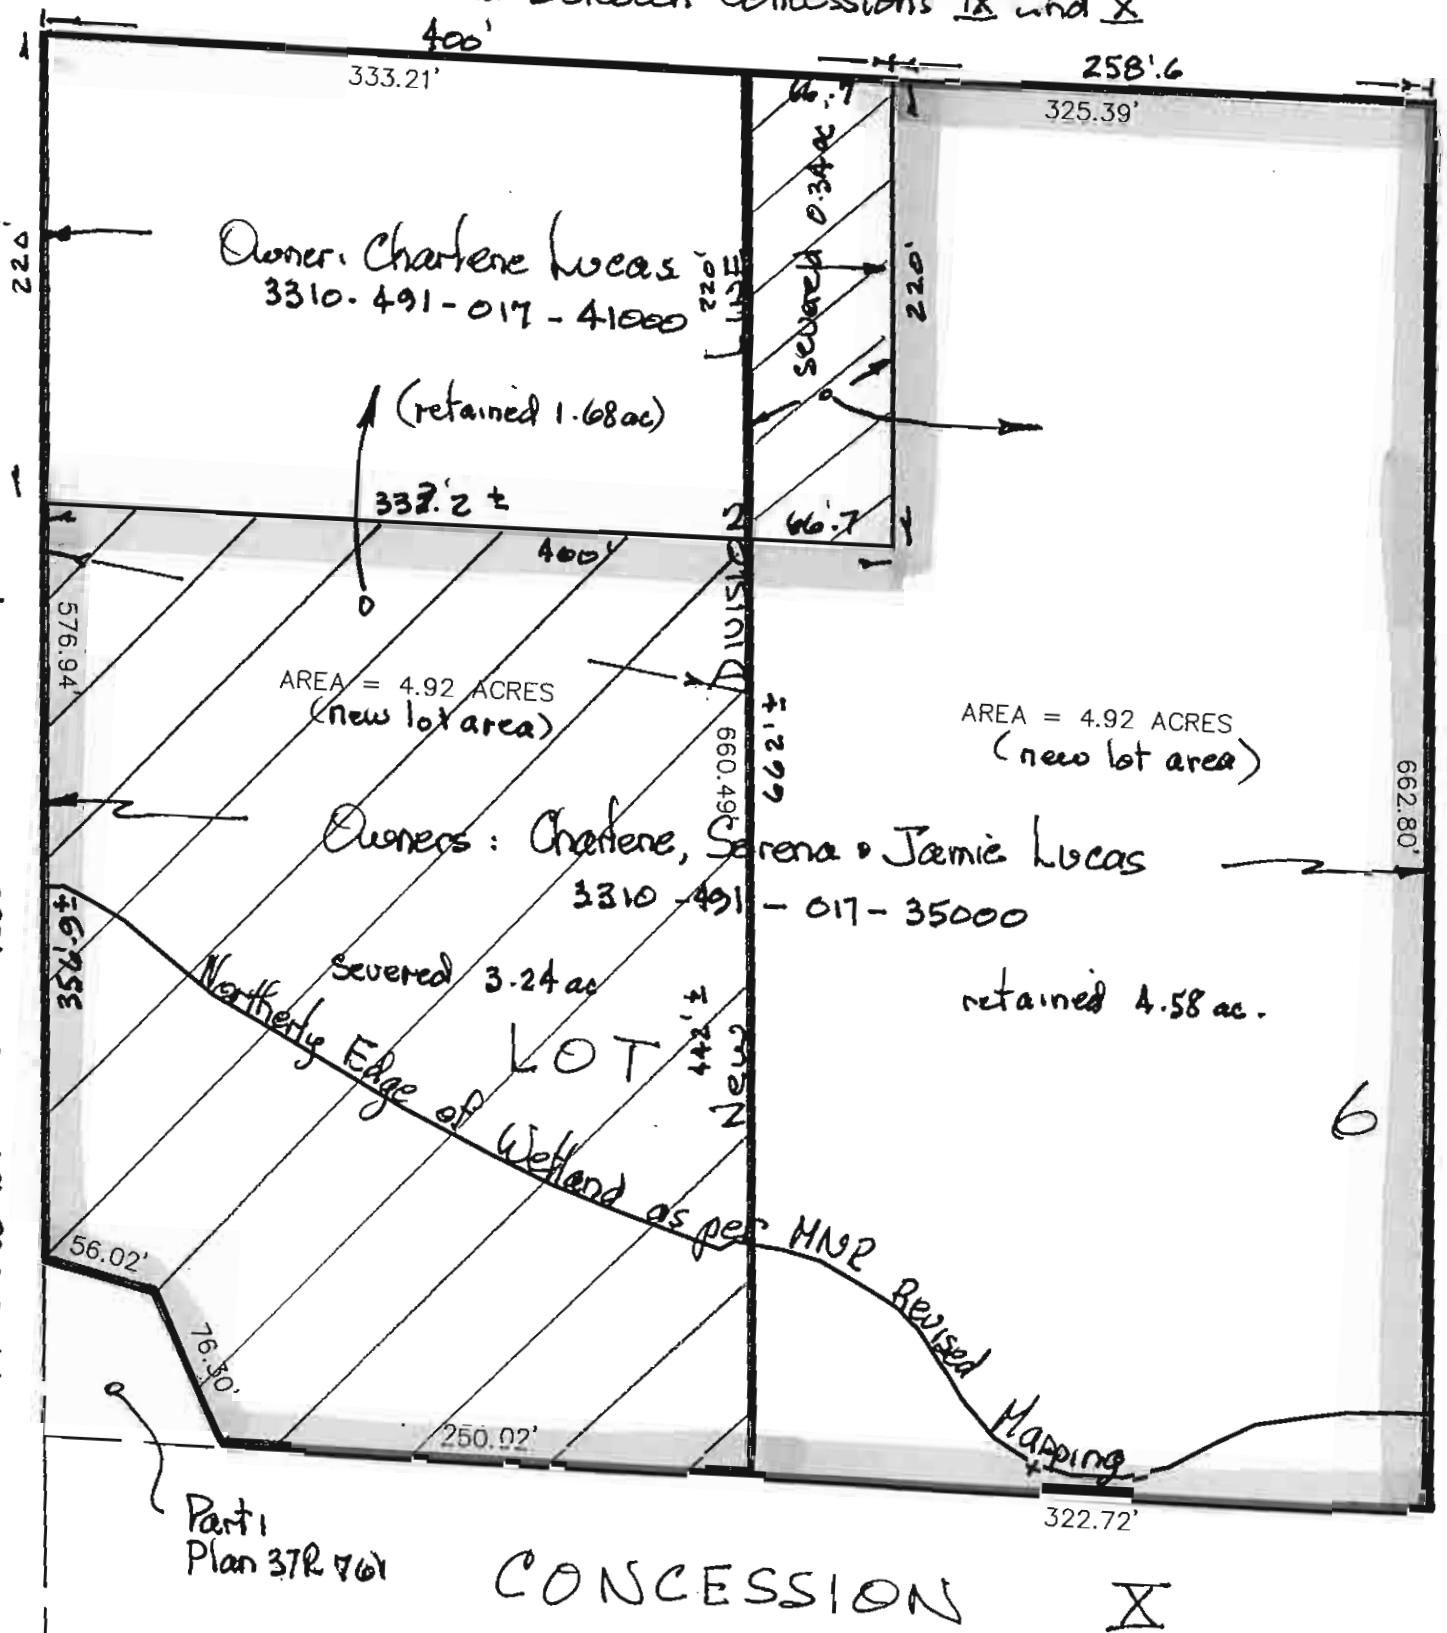 Between Concessions IX and X
400'
258'.6
333.21'
66'.7
325.39'
220'
Owner: Charlene Lucas
3310-491-017-41000
220'
LINE
severed 0.34 ac
220'
(retained 1.68 ac)
333.'2 ±
400'
66'.7
576.94'
DIVISION
AREA = 4.92 ACRES
(new lot area)
AREA = 4.92 ACRES
(new lot area)
660.49'
662' ±
662.80'
Owners: Charlene, Serena & Jamie Lucas
3310-491-017-35000
356'.9 ±
severed 3.24 ac
retained 4.58 ac.
LOT
6
442' ±
New
Northerly Edge of Wetland as per MNR Revised Mapping
56.02'
76.30'
250.02'
322.72'
Part 1
Plan 37R 761
CONCESSION X